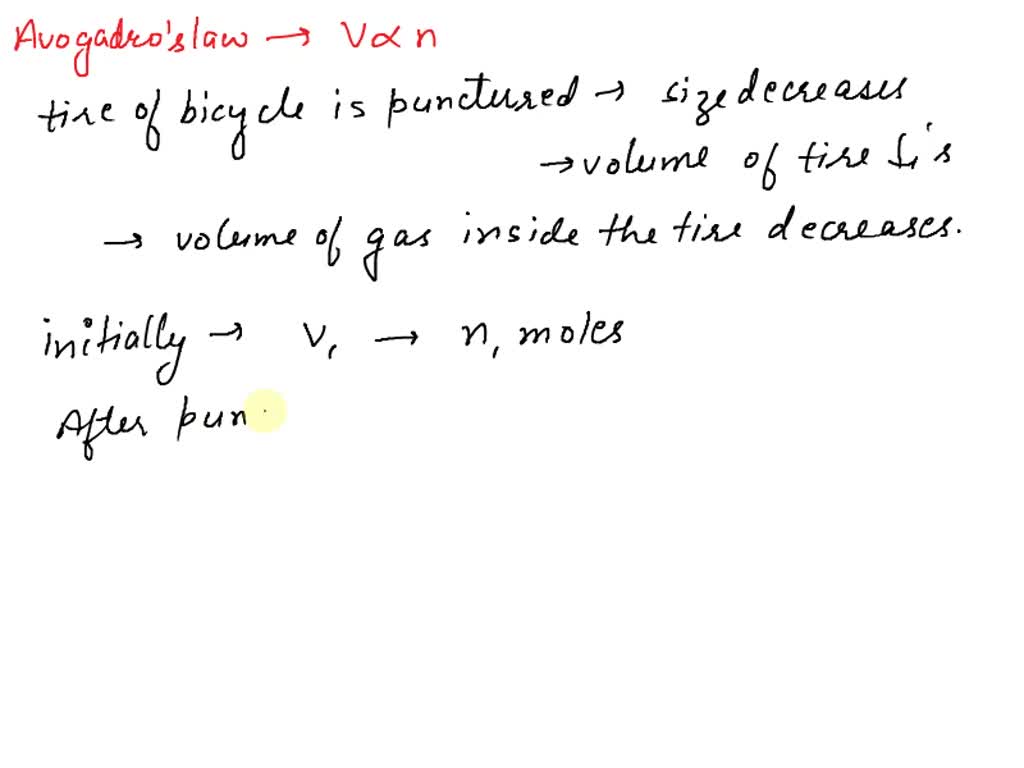 Avogadro's law → V ∝ n
tire of bicycle is punctured → size decreases
→ volume of tire ↓'s
→ volume of gas inside the tire decreases.
initially → V₁ → n₁ moles
After pun